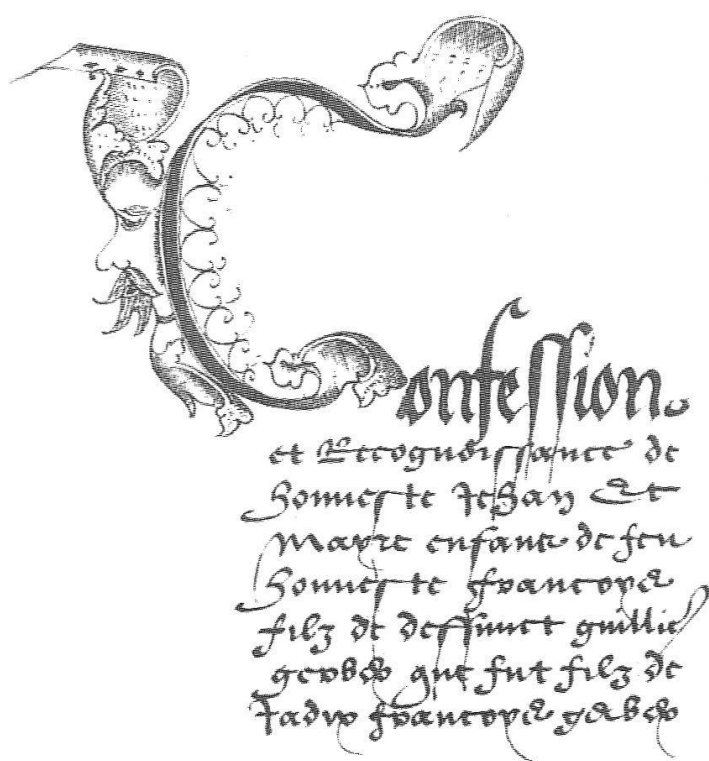 Confession
et Recognoissance de
honneste Jehan Et
Marie enfans de feu
honneste francoys
filz de deffunct guillie
gerbex que fut filz de
Jadix francoys gerbex